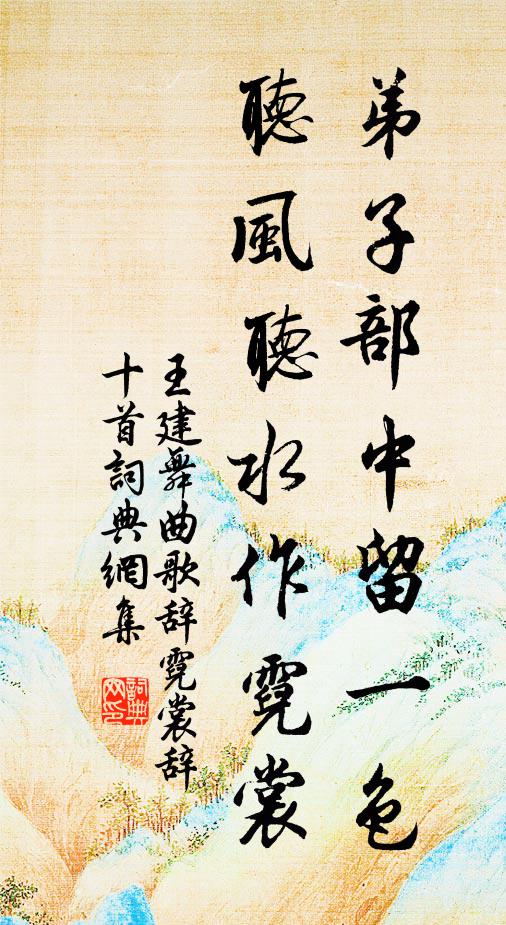 弟子部中留一色
聽風聽水作霓裳
王建舞曲歌辞霓裳辞
十首詞典網集
詞典
网印